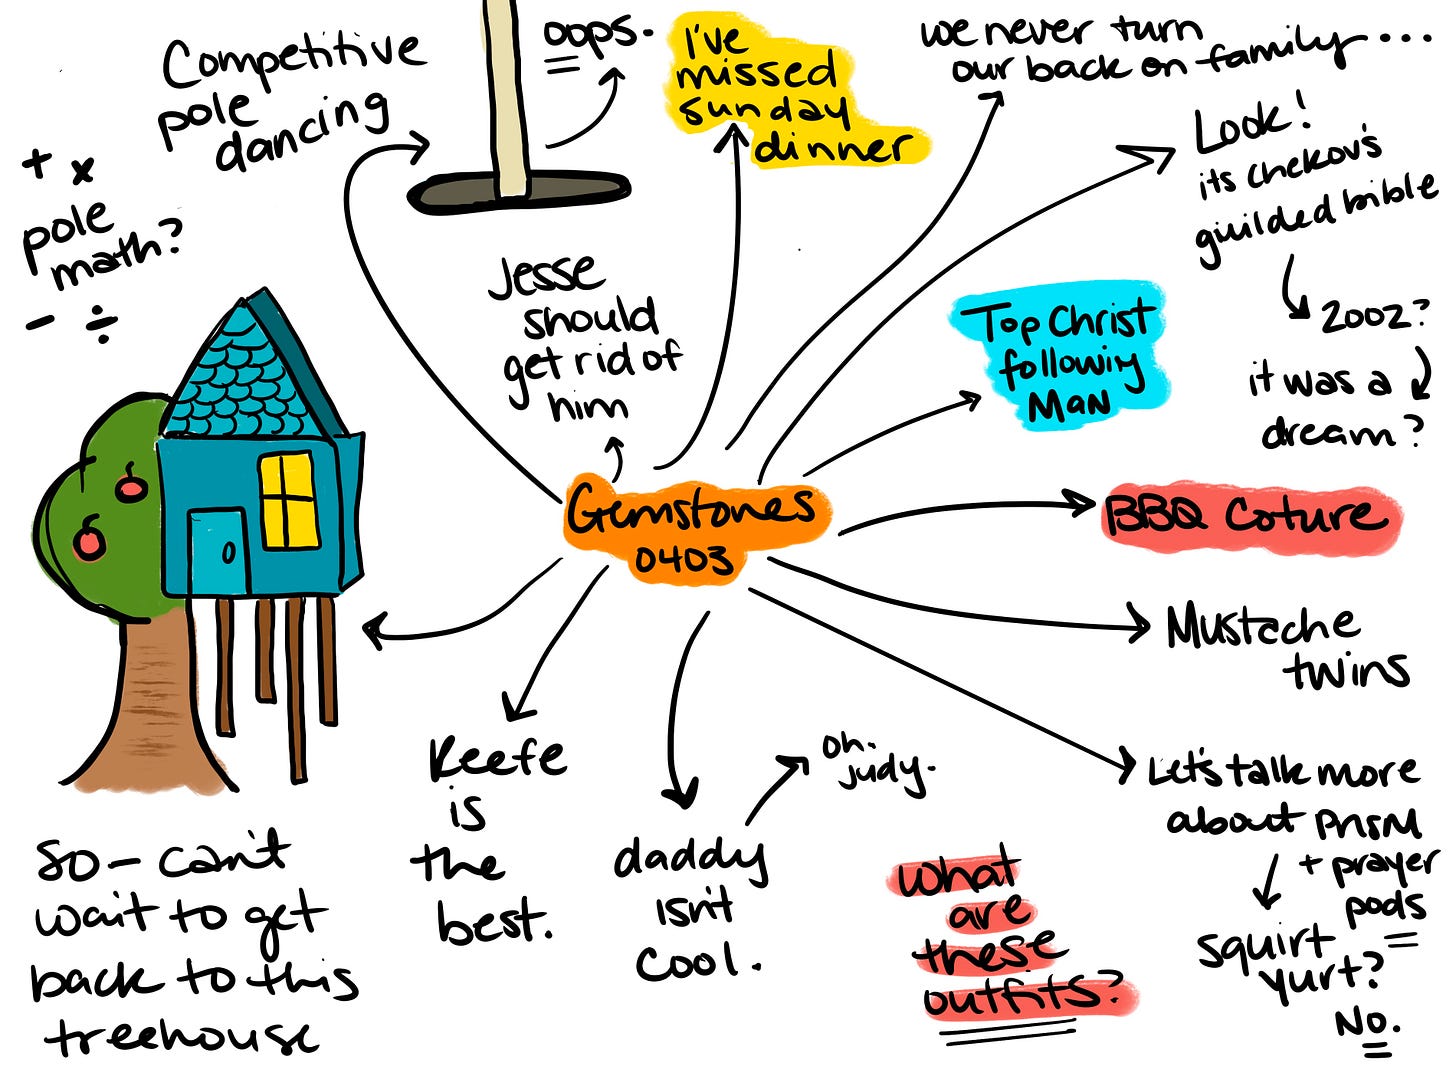 Competitive
pole
dancing
oops.
I've
missed
sunday
dinner
we never turn
our back on family...
Look!
its chekov's
guilded bible
2002?
it was a
dream?
+ x
pole
math?
- ÷
Jesse
should
get rid of
him
Top Christ
following
Man
Gemstones
0403
BBQ Coture
Mustache
twins
Let's talk more
about prism
+ prayer
pods
squirt
yurt?
No.
Keefe
is
the
best.
daddy
isn't
cool.
oh.
judy.
what
are
these
outfits?
so - can't
wait to get
back to this
treehouse